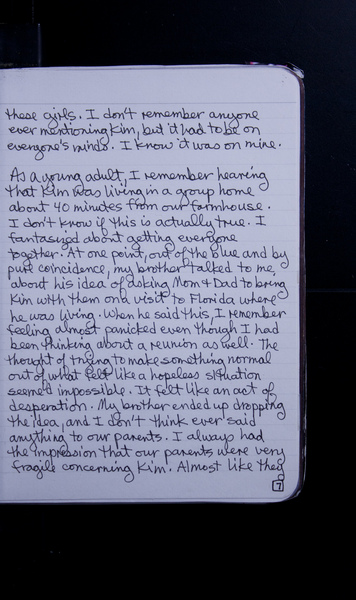 these girls. I don't remember anyone
ever mentioning Kim, but it had to be on
everyone's minds. I know it was on mine.
As a young adult, I remember hearing
that Kim was living in a group home
about 40 minutes from our farmhouse.
I don't know if this is actually true. I
fantasized about getting everyone
together. At one point, out of the blue and by
pure coincidence, my brother talked to me,
about his idea of asking Mom & Dad to bring
Kim with them on a visit to Florida where
he was living. When he said this, I remember
feeling almost panicked even though I had
been thinking about a reunion as well. The
thought of trying to make something normal
out of what felt like a hopeless situation
seemed impossible. It felt like an act of
desperation. My brother ended up dropping
the idea, and I don't think ever said
anything to our parents. I always had
the impression that our parents were very
fragile concerning Kim. Almost like they
7